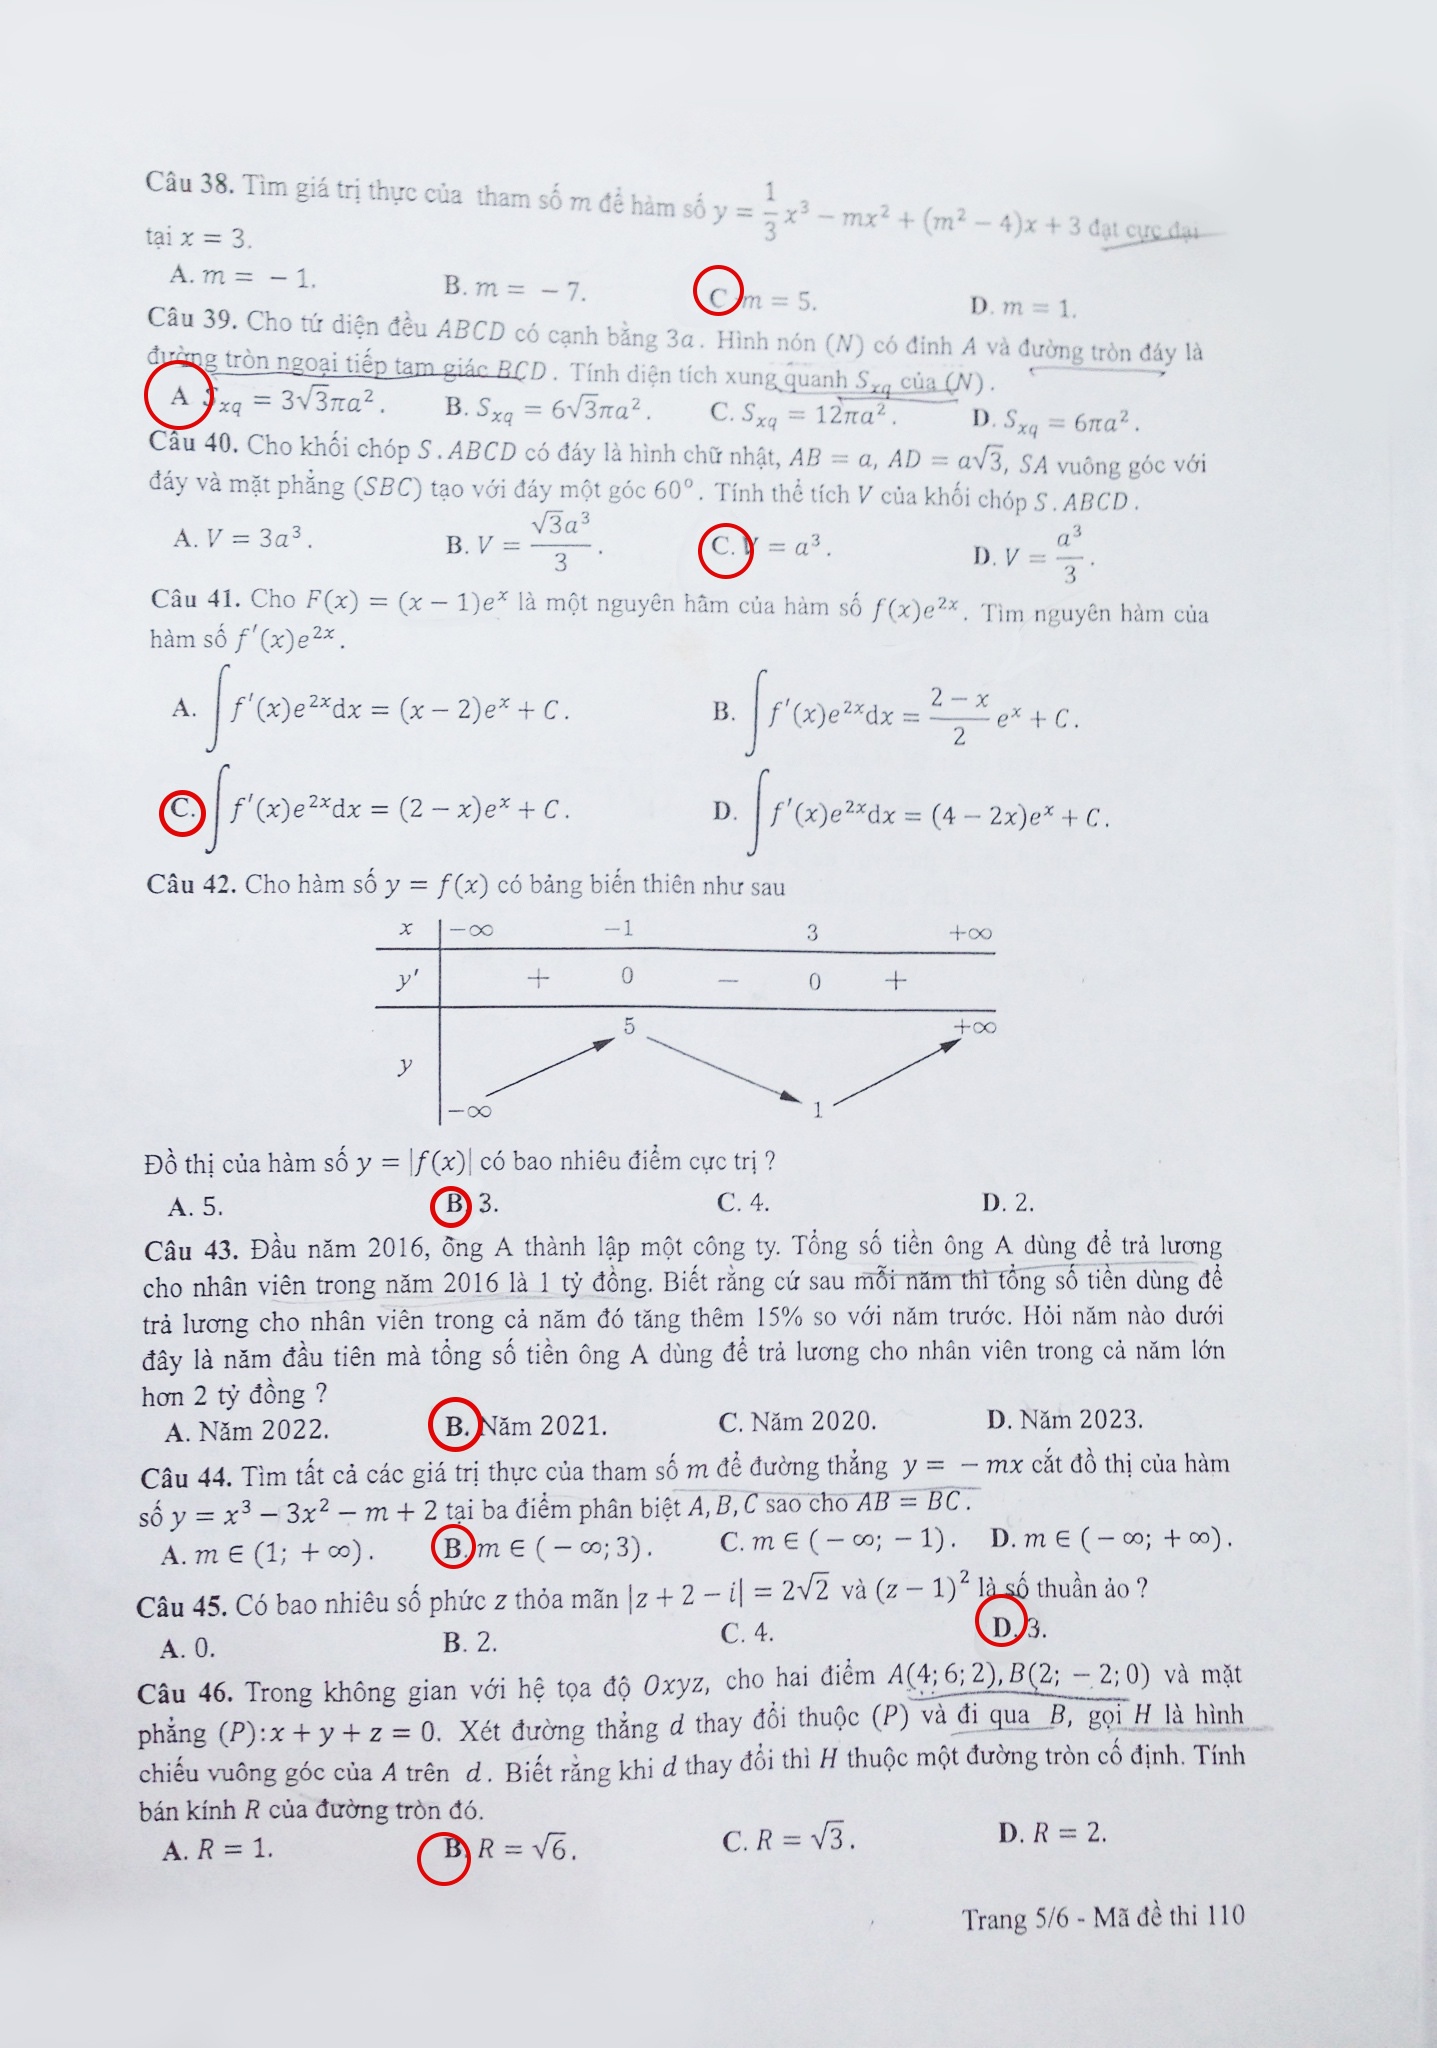 Câu 38. Tìm giá trị thực của tham số m để hàm số y = 1/3 x³ − mx² + (m² − 4)x + 3 đạt cực đại
tại x = 3.
A. m = − 1. B. m = − 7. C m = 5. D. m = 1.
Câu 39. Cho tứ diện đều ABCD có cạnh bằng 3a. Hình nón (N) có đỉnh A và đường tròn đáy là
đường tròn ngoại tiếp tam giác BCD. Tính diện tích xung quanh Sxq của (N).
A Sxq = 3√3πa². B. Sxq = 6√3πa². C. Sxq = 12πa². D. Sxq = 6πa².
Câu 40. Cho khối chóp S.ABCD có đáy là hình chữ nhật, AB = a, AD = a√3, SA vuông góc với
đáy và mặt phẳng (SBC) tạo với đáy một góc 60°. Tính thể tích V của khối chóp S.ABCD.
A. V = 3a³. B. V = √3a³/3. C. V = a³. D. V = a³/3.
Câu 41. Cho F(x) = (x − 1)eˣ là một nguyên hàm của hàm số f(x)e²ˣ. Tìm nguyên hàm của
hàm số f′(x)e²ˣ.
A. ∫f′(x)e²ˣdx = (x − 2)eˣ + C. B. ∫f′(x)e²ˣdx = (2 − x)/2 eˣ + C.
C. ∫f′(x)e²ˣdx = (2 − x)eˣ + C. D. ∫f′(x)e²ˣdx = (4 − 2x)eˣ + C.
Câu 42. Cho hàm số y = f(x) có bảng biến thiên như sau
x −∞ −1 3 +∞
y′ + 0 − 0 +
5 +∞
y
−∞ 1
Đồ thị của hàm số y = |f(x)| có bao nhiêu điểm cực trị ?
A. 5. B. 3. C. 4. D. 2.
Câu 43. Đầu năm 2016, ông A thành lập một công ty. Tổng số tiền ông A dùng để trả lương
cho nhân viên trong năm 2016 là 1 tỷ đồng. Biết rằng cứ sau mỗi năm thì tổng số tiền dùng để
trả lương cho nhân viên trong cả năm đó tăng thêm 15% so với năm trước. Hỏi năm nào dưới
đây là năm đầu tiên mà tổng số tiền ông A dùng để trả lương cho nhân viên trong cả năm lớn
hơn 2 tỷ đồng ?
A. Năm 2022. B. Năm 2021. C. Năm 2020. D. Năm 2023.
Câu 44. Tìm tất cả các giá trị thực của tham số m để đường thẳng y = − mx cắt đồ thị của hàm
số y = x³ − 3x² − m + 2 tại ba điểm phân biệt A, B, C sao cho AB = BC.
A. m ∈ (1; + ∞). B. m ∈ ( − ∞; 3). C. m ∈ ( − ∞; − 1). D. m ∈ ( − ∞; + ∞).
Câu 45. Có bao nhiêu số phức z thỏa mãn |z + 2 − i| = 2√2 và (z − 1)² là số thuần ảo ?
A. 0. B. 2. C. 4. D. 3.
Câu 46. Trong không gian với hệ tọa độ Oxyz, cho hai điểm A(4; 6; 2), B(2; − 2; 0) và mặt
phẳng (P): x + y + z = 0. Xét đường thẳng d thay đổi thuộc (P) và đi qua B, gọi H là hình
chiếu vuông góc của A trên d. Biết rằng khi d thay đổi thì H thuộc một đường tròn cố định. Tính
bán kính R của đường tròn đó.
A. R = 1. B. R = √6. C. R = √3. D. R = 2.
Trang 5/6 - Mã đề thi 110